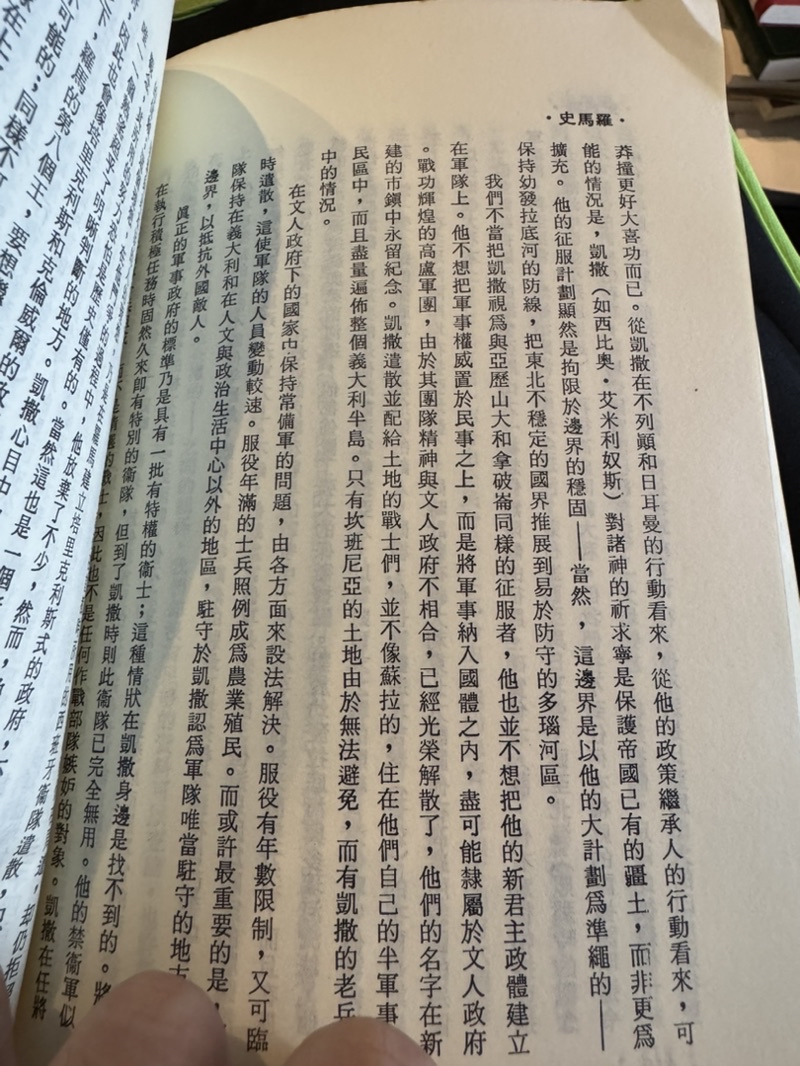 ・史馬羅・
莽撞更好大喜功而已。從凱撒在不列顚和日耳曼的行動看來，從他的政策繼承人的行動看來，可
能的情況是，凱撒（如西比奧・艾米利奴斯）對諸神的祈求寧是保護帝國已有的疆土，而非更爲
擴充。他的征服計劃顯然是拘限於邊界的穩固——當然，這邊界是以他的大計劃爲準繩的——
保持幼發拉底河的防線，把東北不穩定的國界推展到易於防守的多瑙河區。
我們不當把凱撒視爲與亞歷山大和拿破崙同樣的征服者，他也並不想把他的新君主政體建立
在軍隊上。他不想把軍事權威置於民事之上，而是將軍事納入國體之內，盡可能隸屬於文人政府
。戰功輝煌的高盧軍團，由於其團隊精神與文人政府不相合，已經光榮解散了，他們的名字在新
建的市鎭中永留紀念。凱撒遣散並配給土地的戰士們，並不像蘇拉的，住在他們自己的半軍事
民區中，而且盡量遍佈整個義大利半島。只有坎班尼亞的土地由於無法避免，而有凱撒的老兵
中的情況。
在文人政府下的國家中保持常備軍的問題，由各方面來設法解決。服役有年數限制，又可臨
時遣散，這使軍隊的人員變動較速。服役年滿的士兵照例成爲農業殖民。而或許最重要的是，
隊保持在義大利和在人文與政治生活中心以外的地區，駐守於凱撒認爲軍隊唯當駐守的地方
邊界，以抵抗外國敵人。
眞正的軍事政府的標準乃是具有一批有特權的衞士；這種情狀在凱撒身邊是找不到的。將
在執行積極任務時固然久來卽有特別的衞隊，但到了凱撒時則此衞隊已完全無用。他的禁衞軍似
的戰士，因此也不是任何作戰部隊嫉妒的對象。凱撒在任將
西班牙衞隊遣散，却仍拒
建立培里克利斯式的政府，
他放棄了不少，然而，
歷史僅有的。當然這也是一個
明晰判斷的地方。凱撒心目中
；因此也會像培里克利斯和克倫威爾的政
下，羅馬的第八個王，要想
可能的；同樣不可